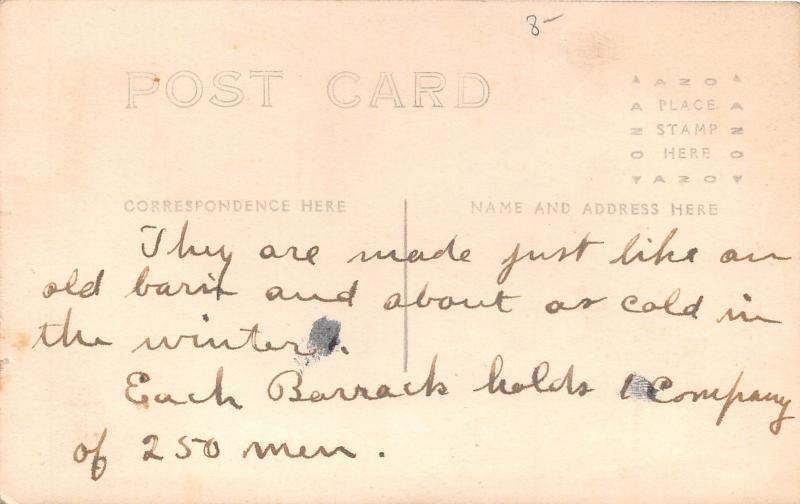 8-
POST CARD
AZO
A PLACE A
Z STAMP Z
O HERE O
AZO
CORRESPONDENCE HERE
NAME AND ADDRESS HERE
They are made just like an
old barn and about as cold in
the winter.
Each Barrack holds 1 Company
of 250 men.